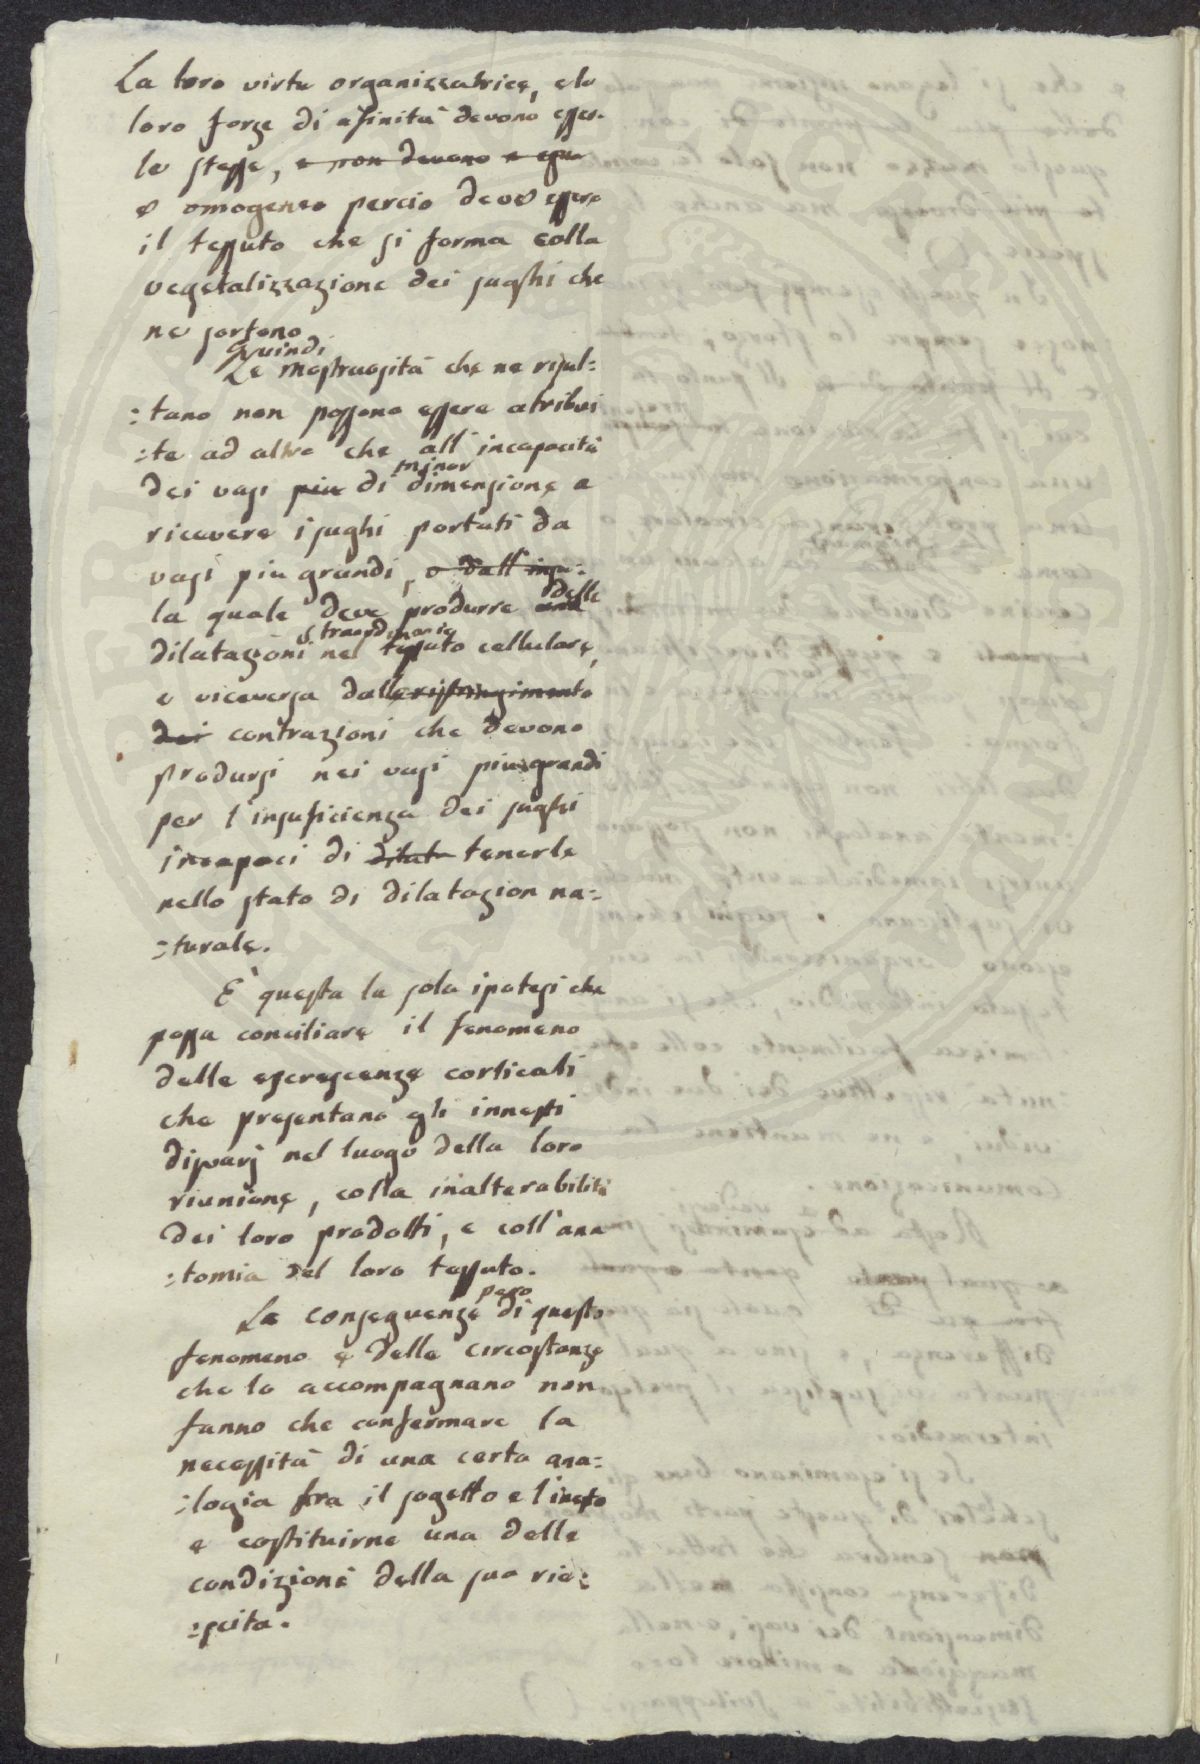 La loro virtu organizzatrice, e le
loro forze di afinità devono esser
le stesse, e non devono e
e omogeneo percio deve essere
il tessuto che si forma colla
vegetalizzazione dei sughi che
ne sortono
quindi
Le mostruosità che ne risul=
:tano non possono essere atribui
:te ad altro che all'incapacità
minor
dei vasi piu di dimensione a
ricevere i sughi portati da
vasi piu grandi, o dall'insu=
delle
la quale deve produrre una
straordinarie
dilatazioni nel tessuto cellulare,
e viceversa dalle ristringimento
dei contrazioni che devono
prodursi nei vasi piu grandi
per l'insuficienza dei sughi
incapaci di dilata tenerle
nello stato di dilatazion na=
:turale.
È questa la sola ipotesi che
possa conciliare il fenomeno
delle escrescenze corticali
che presentano gli innesti
disparj nel luogo della loro
riunione, colla inalterabilità
dei loro prodotti, e coll'ana
:tomia del loro tessuto.
pero
Le conseguenze di questo
fenomeno e delle circostanze
che lo accompagnano non
fanno che confermare la
necessità di una certa ana=
:logia fra il sogetto e l'inesto
e costituirne una delle
condizioni della sua rie=
:scita.